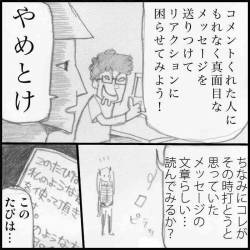 コメントくれた人に
もれなく真面目な
メッセージを
送りつけて
リアクションに
困らせてみよう！
やめとけ
ちなみにコレが
その時打とうと
思っていた
メッセージの
文章らしい…
読んでみるか？
このたび
私のような
を使って頂き
このたびは…